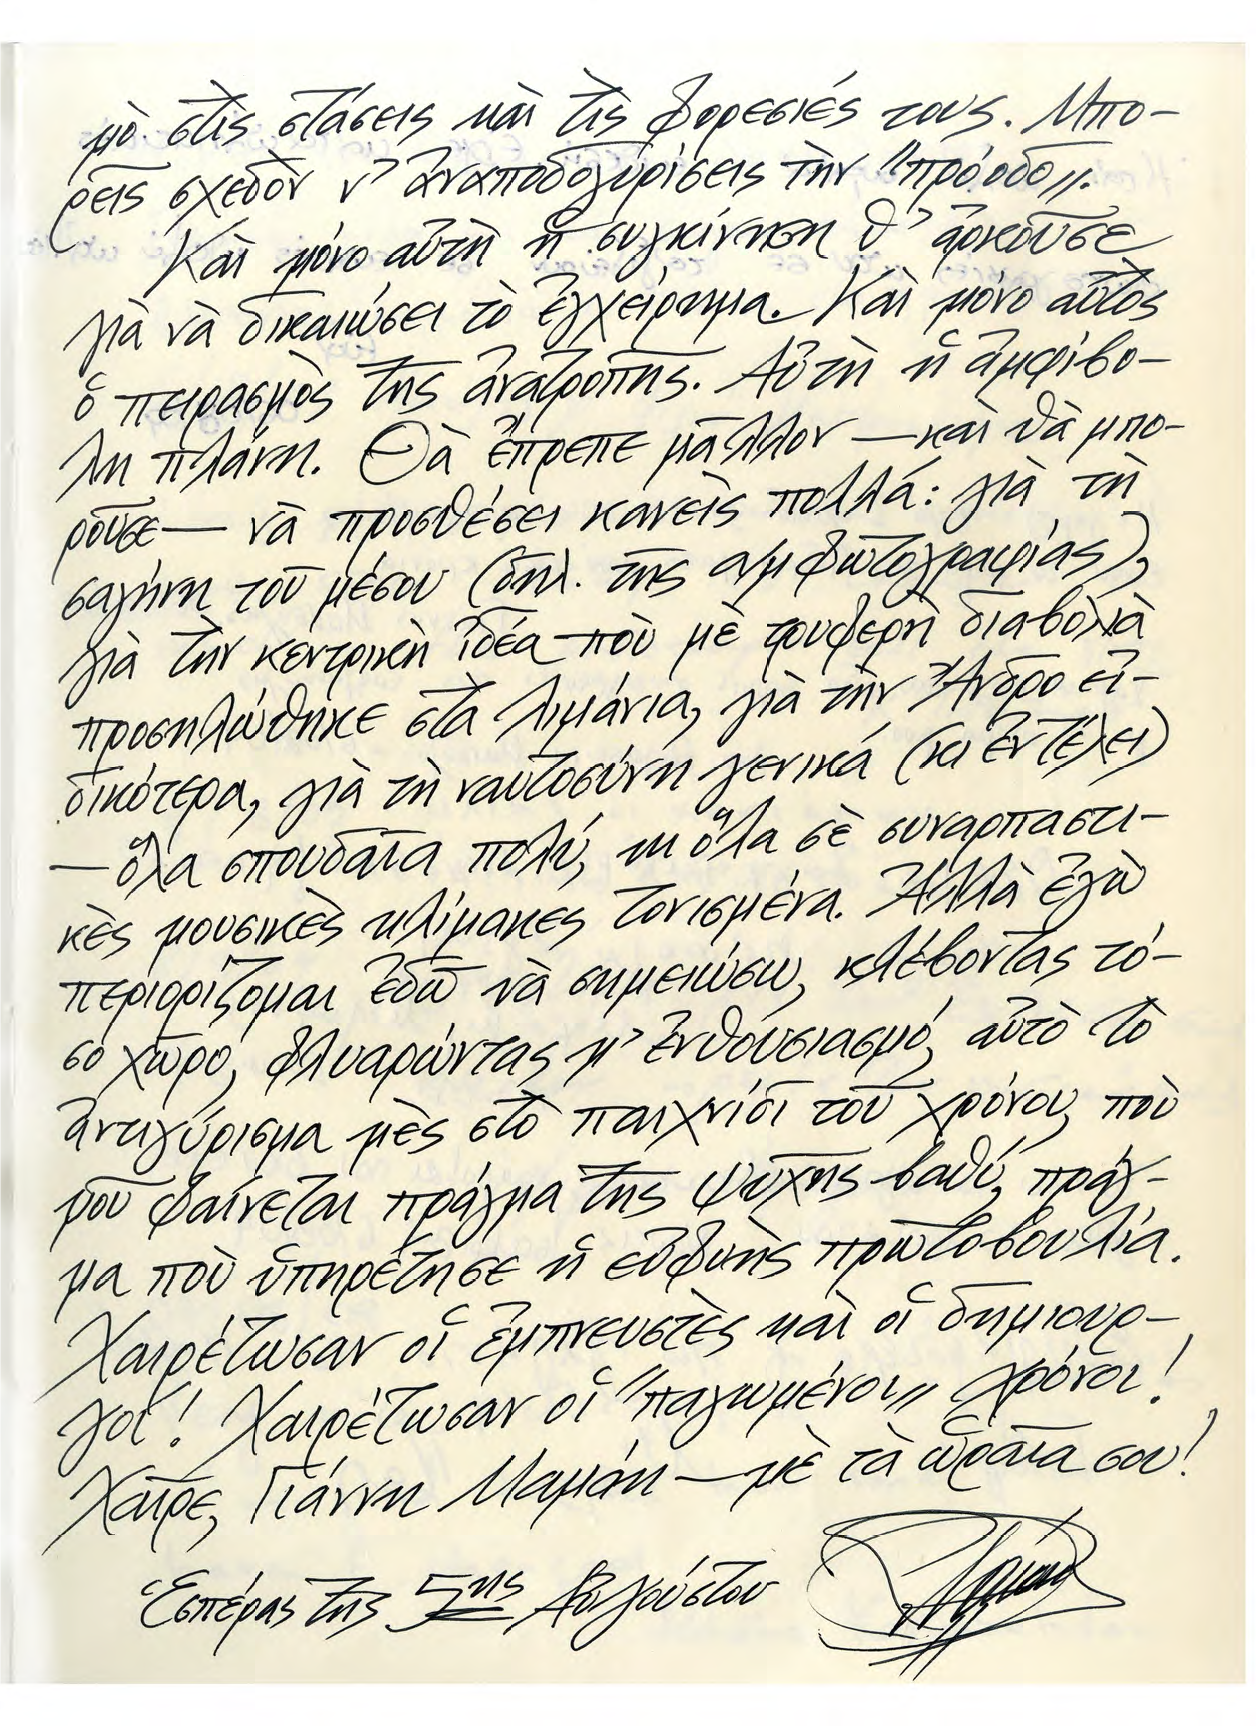 μὸ στὶς στάσεις καὶ τὶς φορεσιές τους. Μπο-
ρεῖς σχεδὸν ν' ἀναποδογυρίσεις τὴν "πρόοδο".
Καὶ μόνο αὐτὴ ἡ συγκίνηση θ' ἀρκοῦσε
γιὰ νὰ δικαιώσει τὸ ἐγχείρημα. Καὶ μόνο αὐτὸς
ὁ πειρασμὸς τῆς ἀνατροπῆς. Αὐτὴ ἡ ἀμφίβο-
λη πλάνη. Θὰ ἔπρεπε μᾶλλον — καὶ θὰ μπο-
ροῦσε — νὰ προσθέσει κανεὶς πολλά: γιὰ τὴ
σαγήνη τοῦ μέσου (δηλ. τῆς α/μ φωτογραφίας),
γιὰ τὴν κεντρικὴ ἰδέα ποὺ μὲ τρυφερὴ διαβολιὰ
προσηλώθηκε στὰ λιμάνια, γιὰ τὴν Ἄνδρο εἰ-
δικότερα, γιὰ τὴ ναυτοσύνη γενικά (κι ἐντέλει)
— ὅλα σπουδαῖα πολύ, κι ὅλα σὲ συναρπαστι-
κὲς μουσικὲς κλίμακες τονισμένα. Ἀλλὰ ἐγὼ
περιορίζομαι ἐδῶ νὰ σημειώσω, κλέβοντας τό-
σο χῶρο, φλυαρώντας μ' ἐνθουσιασμό, αὐτὸ τὸ
ἀντιγύρισμα μὲς στὸ παιχνίδι τοῦ χρόνου, ποὺ
μοῦ φαίνεται πράγμα τῆς ψυχῆς βαθύ, πράγ-
μα ποὺ ὑπηρέτησε ἡ εὐφυὴς πρωτοβουλία.
Χαιρέτωσαν οἱ ἐμπνευστὲς καὶ οἱ δημιουρ-
γοί! Χαιρέτωσαν οἱ "παγωμένοι" χρόνοι!
Χαῖρε, Γιάννη Μαμάη — μὲ τὰ ὡραῖα σου!
Ἑσπέρας τῆς 5ης Αὐγούστου